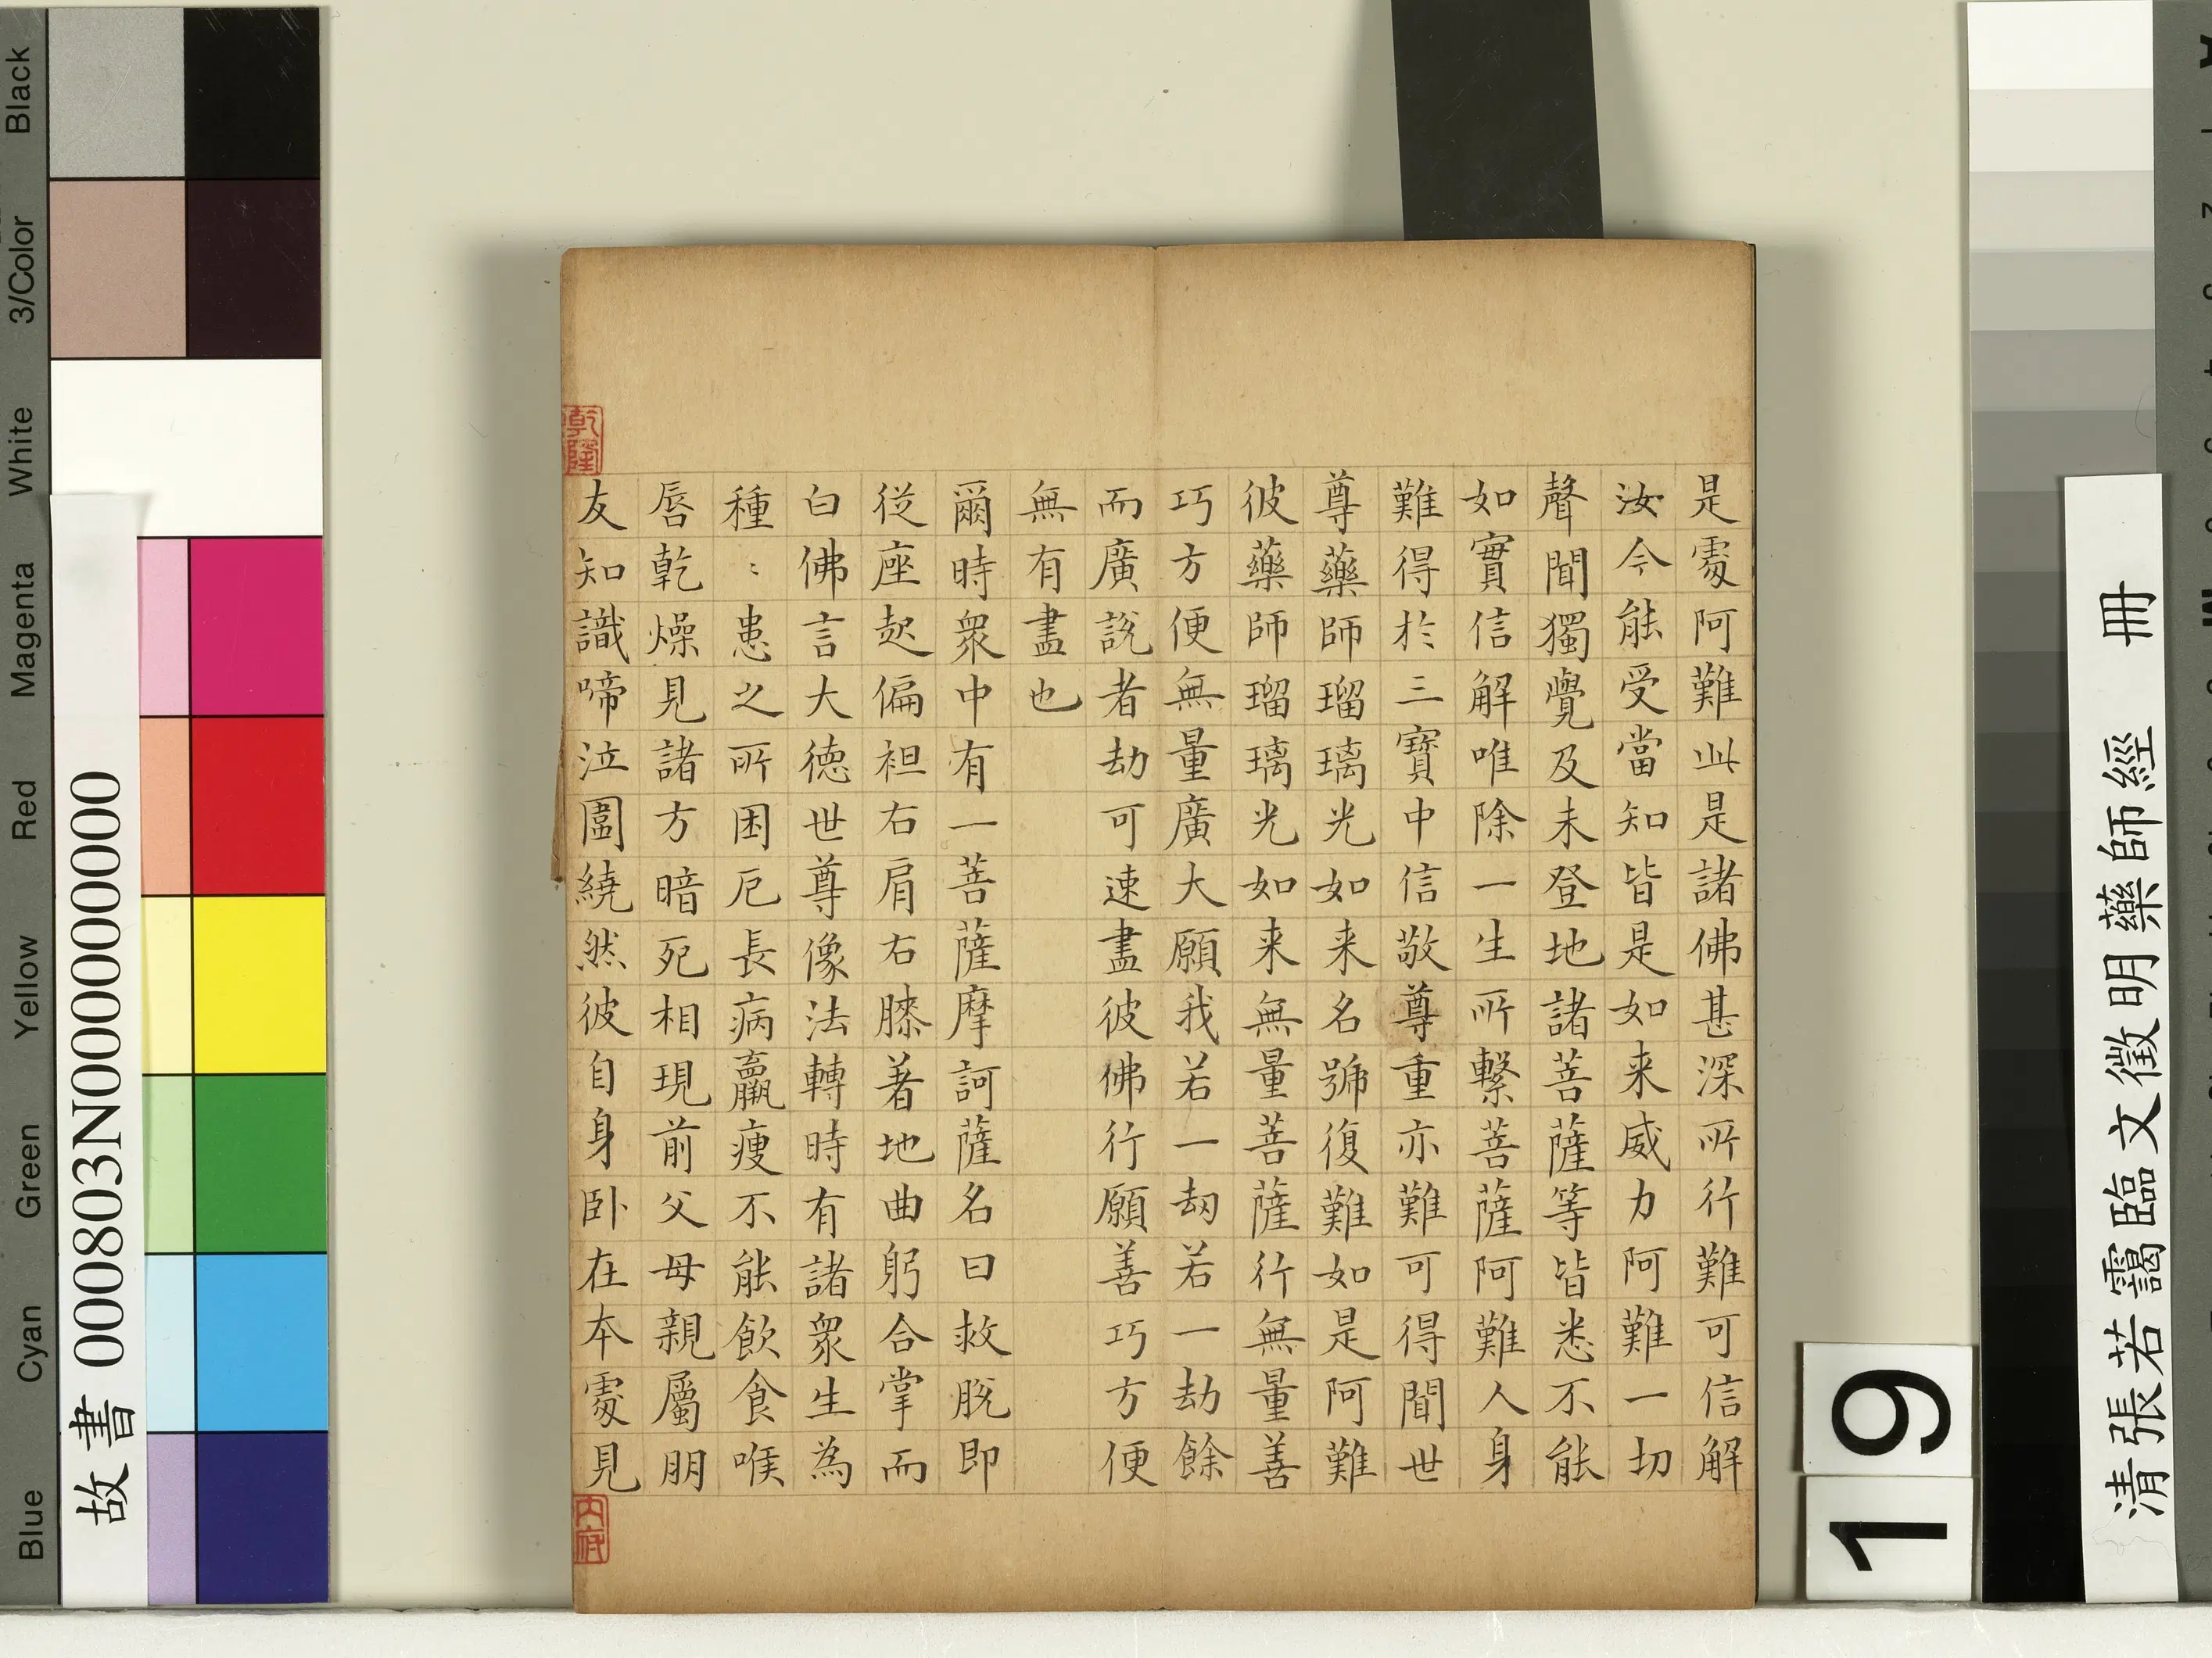 是處阿難此是諸佛甚深所行難可信解
汝今能受當知皆是如来威力阿難一切
聲聞獨覺及未登地諸菩薩等皆悉不能
如實信解唯除一生所繫菩薩阿難人身
難得於三寶中信敬尊重亦難可得聞世
尊藥師瑠璃光如来名號復難如是阿難
彼藥師瑠璃光如来無量菩薩行無量善
巧方便無量廣大願我若一劫若一劫餘
而廣說者劫可速盡彼佛行願善巧方便
無有盡也
爾時衆中有一菩薩摩訶薩名曰救脫即
從座起偏袒右肩右膝著地曲躬合掌而
白佛言大德世尊像法轉時有諸衆生為
種〻患之所困厄長病羸瘦不能飲食喉
唇乾燥見諸方暗死相現前父母親屬朋
友知識啼泣圍繞然彼自身卧在本處見
乾隆
内府
清張若靄臨文徵明藥師經 冊
19
故書 000803N000000000
Blue
Cyan
Green
Yellow
Red
Magenta
White
3/Color
Black
A
M